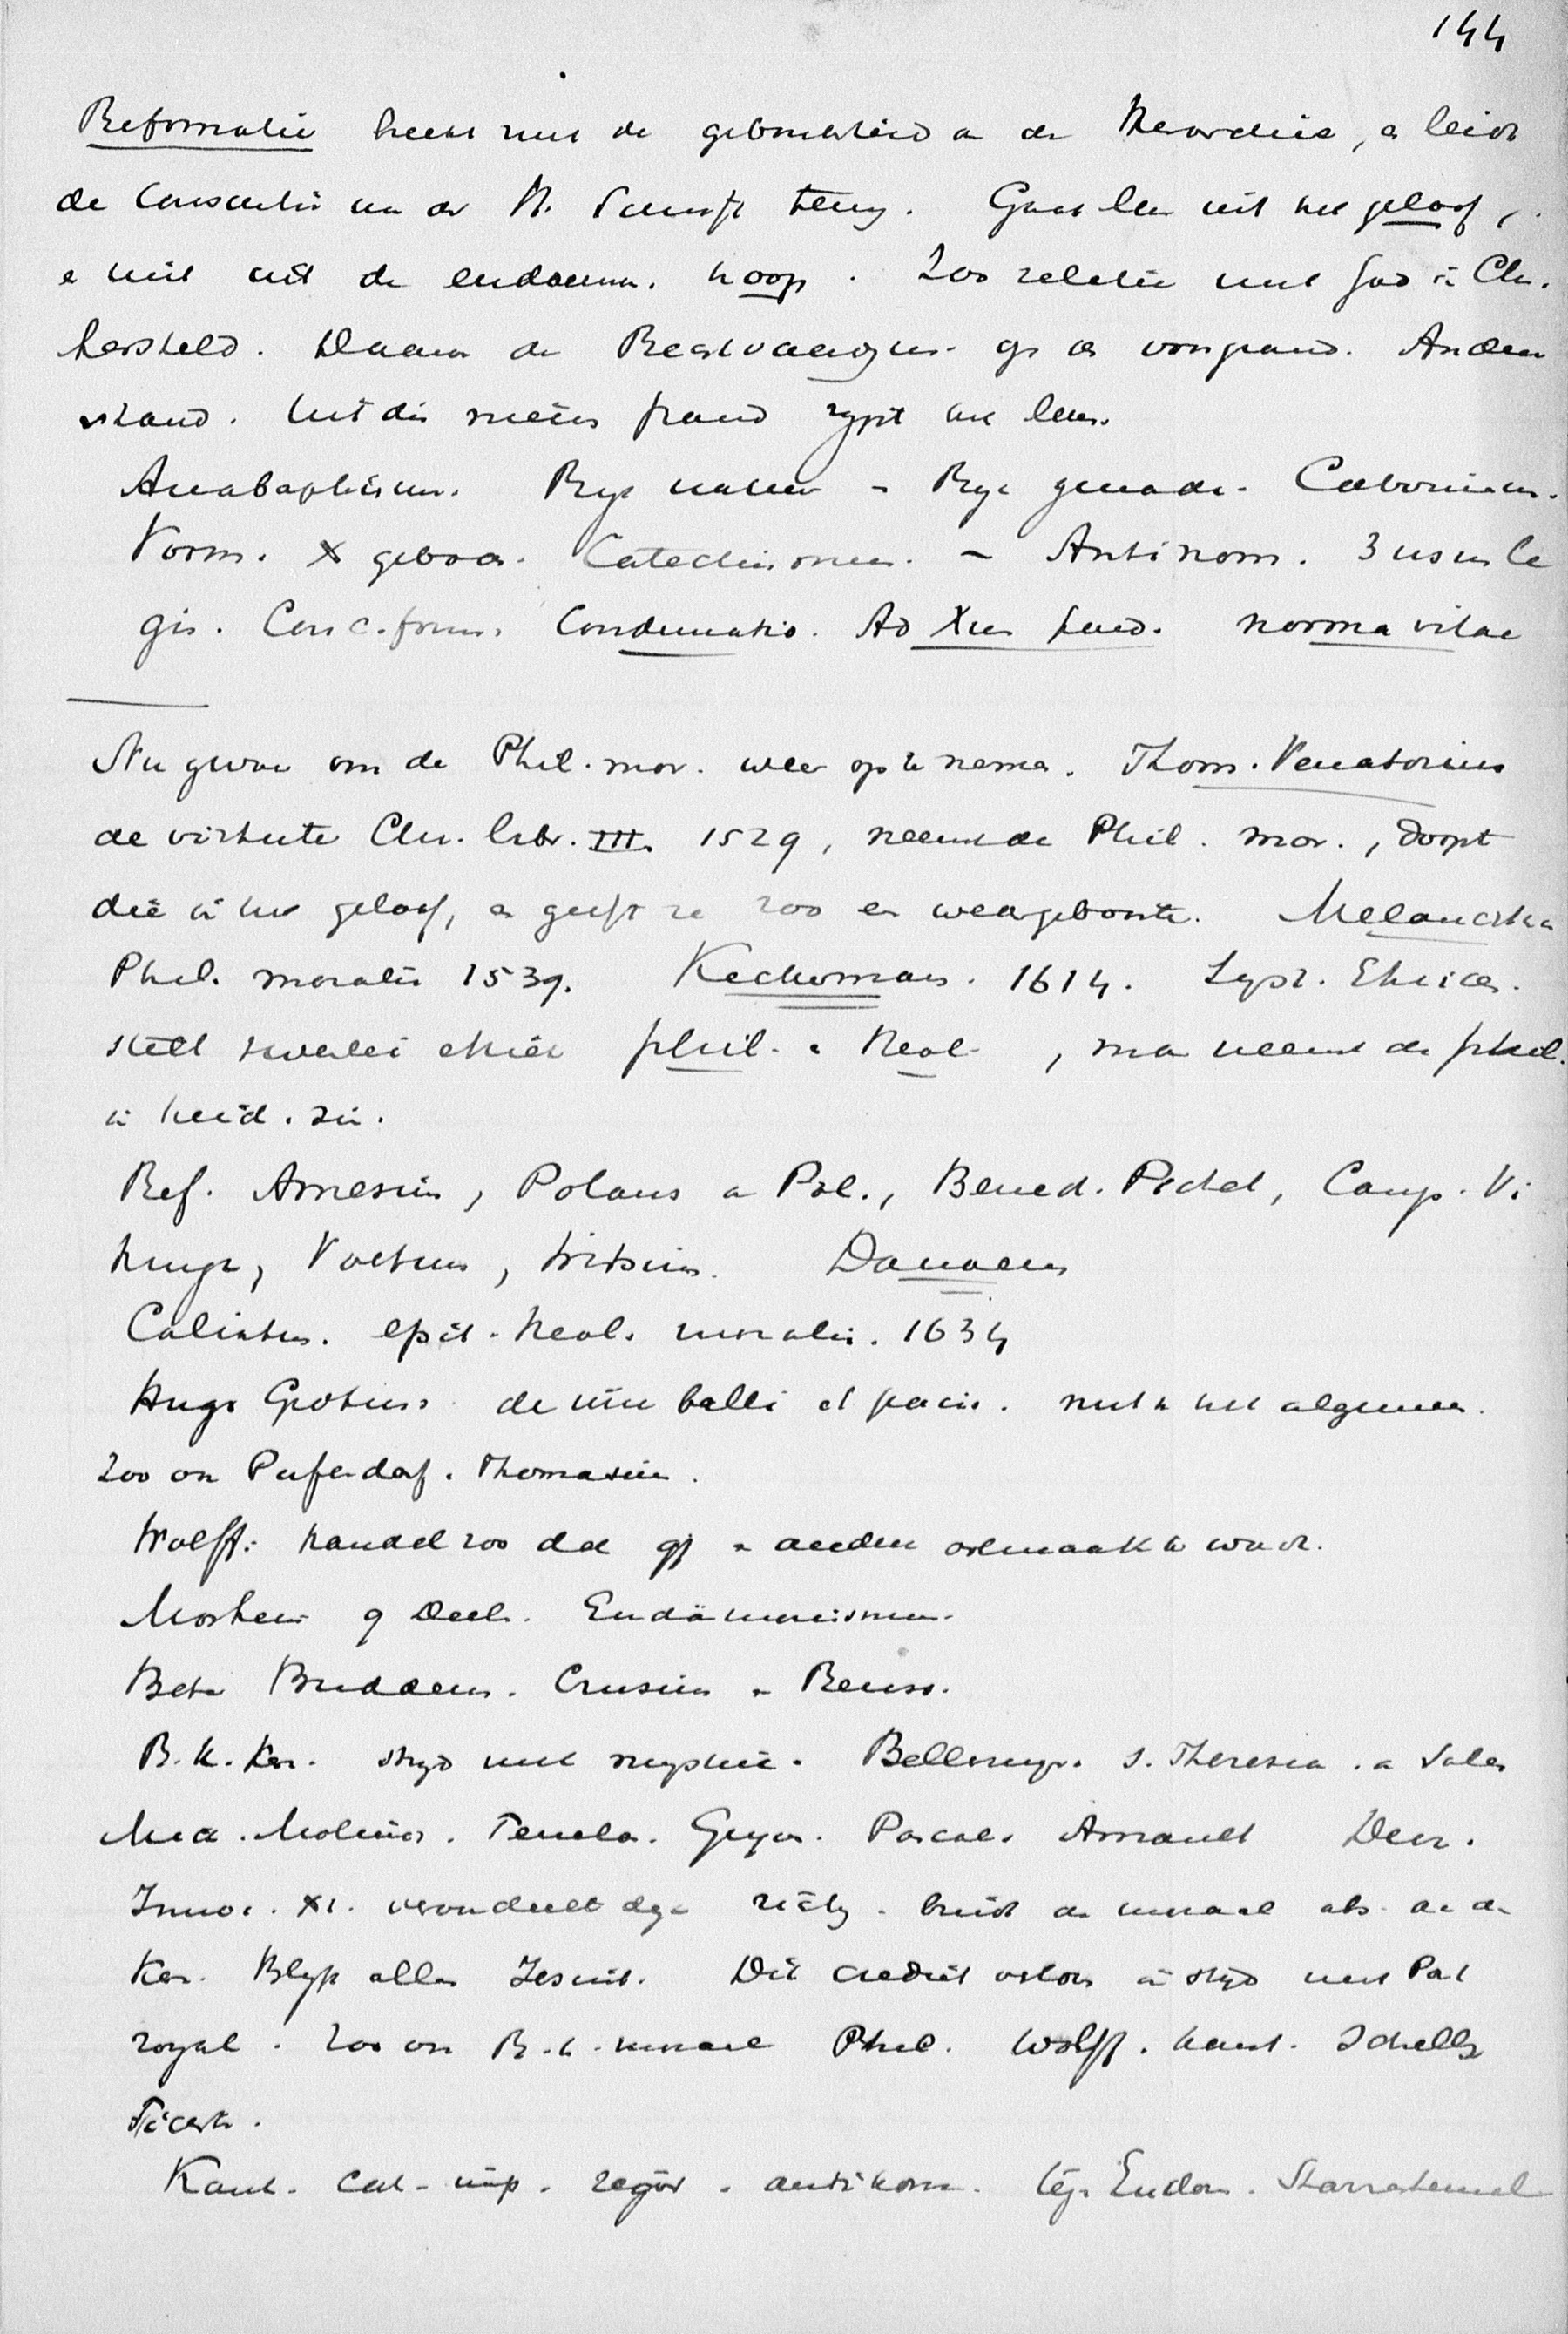 144
Reformatie breekt met de gebondenheid a de Hierarchie, e leidt
de Conscientie aan de H. Schrift terug. Gaat leven uit het geloof,
e niet uit de eudaem. hoop. Zoo relatie met God in Chr.
hersteld. Daarom de Rechtvaardigm. op de voorgrond. Andere
stand. Uit die nieuwe grond rijpt het leven.
Anabaptism. Ryk natuur - Ryk genade. Calvinism.
Vorm. X geboden. Catechismen. - Antinom. 3 usus le
gis. Conc. form. Condemnatio. Ad Xum paed. norma vitae
Nu gevaar om de Phil. mor. weer op te nemen. Thom. Venatorius
de virtute Chr. libr. III. 1529, neemt de Phil. mor., doopt
die in het geloof, e geeft ze zoo en weergeboorte. Melanchthon
Phil. moralis 1539. Keckerman. 1614. Syst. Ethices.
stelt tweeërlei ethiek phil. e theol., maar neemt de phil.
in heid. zin.
Ref. Amesius, Polanus a Pol., Bened. Pictet, Camp. Vi
tringa, Voetius, Witsius. Danaeus
Calixtus. epit. theol. moralis. 1634
Hugo Grotius. de iure belli et pacis. met het algemeen.
Zoo ook Pufendorf. Thomasius.
Wolff: handel zoo dat gij e anderen volmaakter wordt.
Mosheim 9 Deelen. Eudämonismus.
Beter Buddeus. Crusius e Reuss.
R. K. Kerk. strijd met mystiek. Bellarmijn. S. Theresia. a Sales
Mich. Molinos. Fenelon. Guyon. Pascal. Arnault Deen.
Innoc. XI. veroordeelt deze richting. bindt de moraal als aan de
Kerk. Blijft alles Jesuit. Dit crediet verloren in strijd met Port
royal. Zoo ook R. K. moraal Phil. Wolff. Kant. Schelling
Fichte.
Kant. Cat. imp. rigor. autonom. tegen Eudaem. Starrestemel